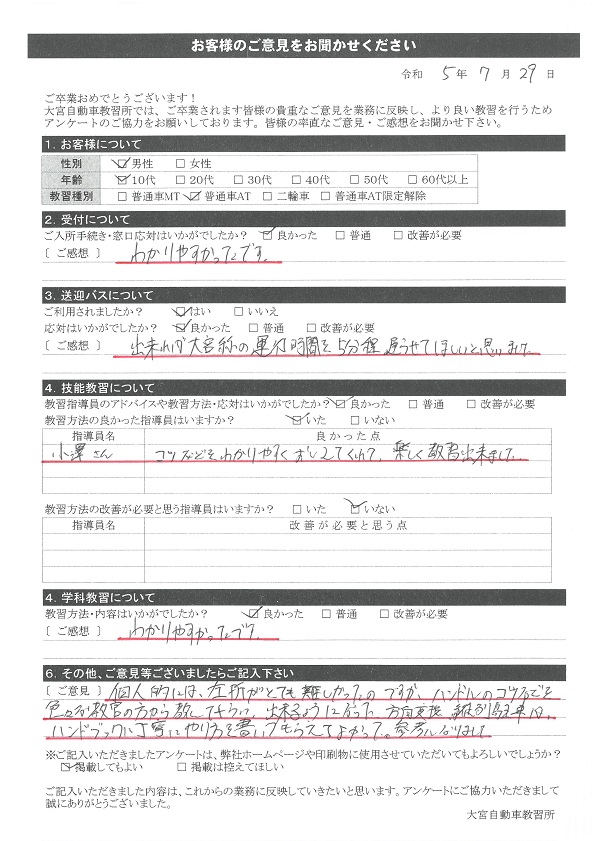 お客様のご意見をお聞かせください
令和 5年 7月 29日
ご卒業おめでとうございます！
大宮自動車教習所では、ご卒業されます皆様の貴重なご意見を業務に反映し、より良い教習を行うため
アンケートのご協力をお願いしております。皆様の率直なご意見・ご感想をお聞かせ下さい。
1. お客様について
性別 ☑男性 □女性
年齢 ☑10代 □20代 □30代 □40代 □50代 □60代以上
教習種別 □普通車MT ☑普通車AT □二輪車 □普通車AT限定解除
2. 受付について
ご入所手続き・窓口応対はいかがでしたか？ ☑良かった □普通 □改善が必要
〔 ご感想 〕 わかりやすかったです。
3. 送迎バスについて
ご利用されましたか？ ☑はい □いいえ
応対はいかがでしたか？ ☑良かった □普通 □改善が必要
〔 ご感想 〕 出来れば大宮線の運行時間を5分程遅らせてほしいと思いました。
4. 技能教習について
教習指導員のアドバイスや教習方法・応対はいかがでしたか？ ☑良かった □普通 □改善が必要
教習方法の良かった指導員はいますか？ ☑いた □いない
指導員名 良かった点
小澤さん コツなどをわかりやすくおしえてくれて、楽しく教習出来ました。
教習方法の改善が必要と思う指導員はいますか？ □いた ☑いない
指導員名 改善が必要と思う点
4. 学科教習について
教習方法・内容はいかがでしたか？ ☑良かった □普通 □改善が必要
〔 ご感想 〕 わかりやすかったです。
6. その他、ご意見等ございましたらご記入下さい
〔 ご意見 〕 個人的には、左折がとても難しかったのですが、ハンドルのコツなどを
色々な教官の方から教してもらい、出来るようになった。方向変換、縦列駐車は、
ハンドブックに丁寧にやり方を書いてもらえてよかった。参考になりました
※ご記入いただきましたアンケートは、弊社ホームページや印刷物に使用させていただいてもよろしいでしょうか？
☑掲載してもよい □掲載は控えてほしい
ご記入いただきました内容は、これからの業務に反映していきたいと思います。アンケートにご協力いただきまして
誠にありがとうございました。
大宮自動車教習所